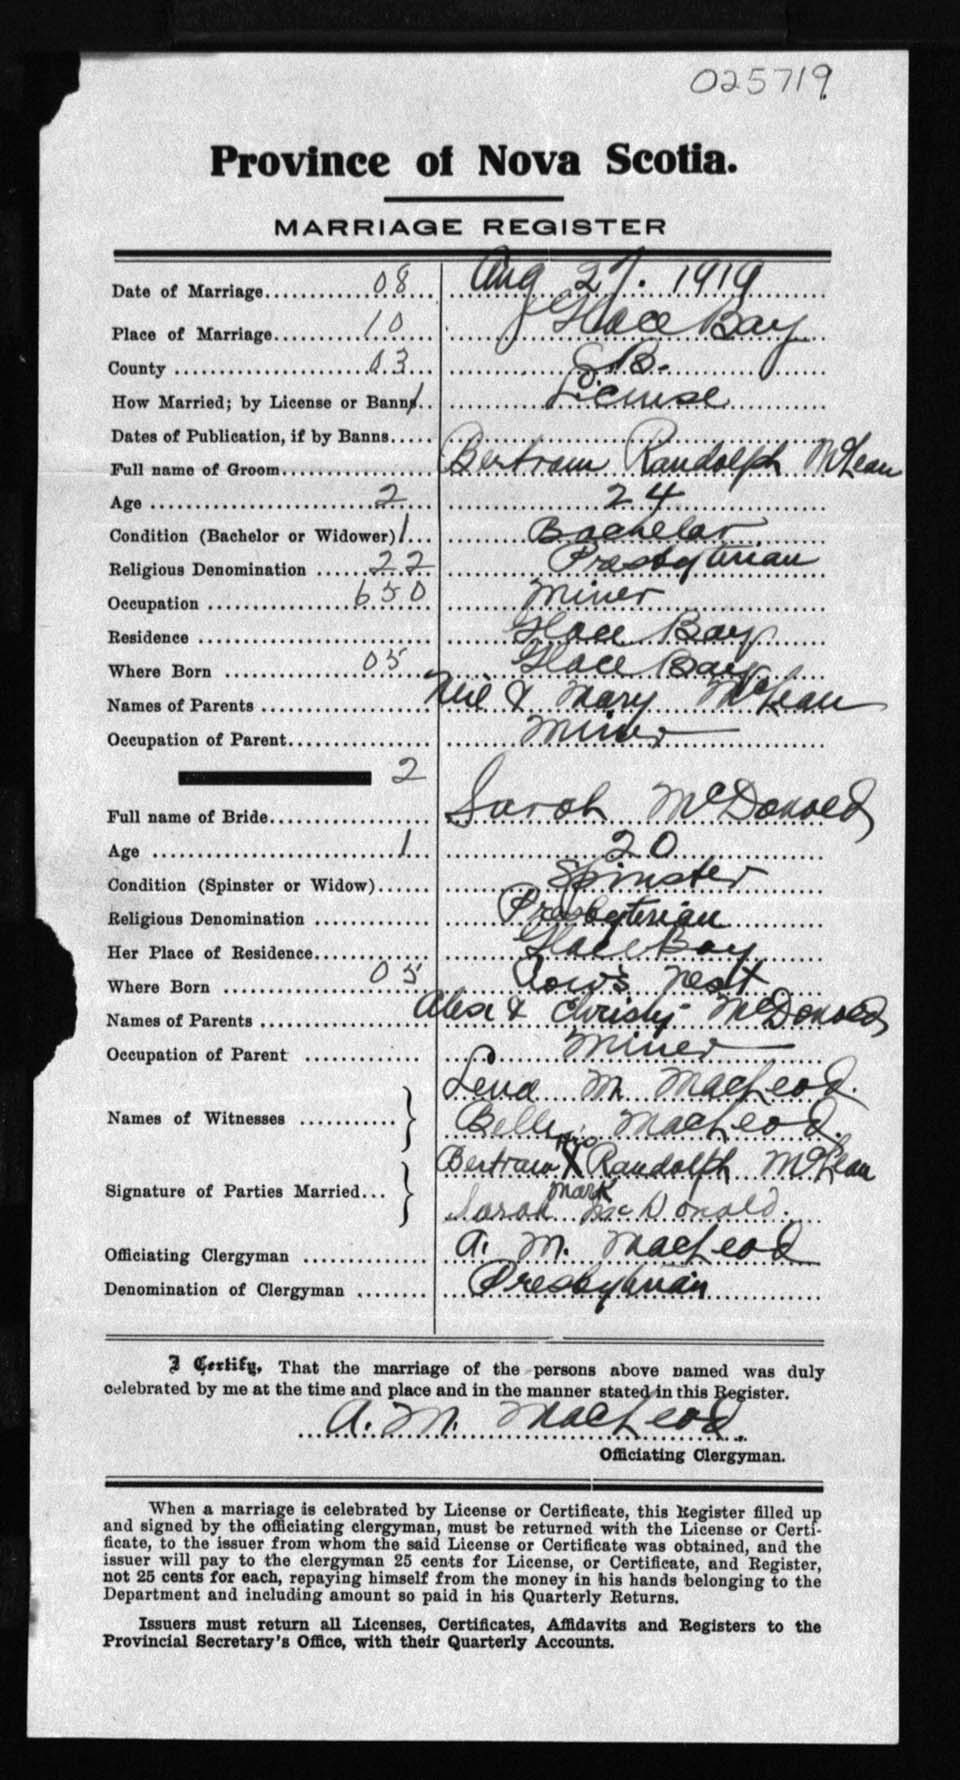 025719
Province of Nova Scotia.
MARRIAGE REGISTER
Date of Marriage 08 Aug 27. 1919
Place of Marriage 10 Glace Bay
County 03 C.B.
How Married; by License or Banns 1 License
Dates of Publication, if by Banns
Full name of Groom Bertram Randolph McLean
Age 2 24
Condition (Bachelor or Widower) 1 Bachelor
Religious Denomination 22 Presbyterian
Occupation 650 Miner
Residence Glace Bay
Where Born 05 Glace Bay
Names of Parents Neil & Mary McLean
Occupation of Parent Miner
2
Full name of Bride Sarah McDonald
Age 1 20
Condition (Spinster or Widow) Spinster
Religious Denomination Presbyterian
Her Place of Residence Glace Bay
Where Born 05 Nest
Names of Parents Alex & Christy McDonald
Occupation of Parent Miner
Names of Witnesses Lena M MacLeod.
Belle MacLeod.
Signature of Parties Married Bertram his X mark Randolph McLean
Sarah McDonald.
Officiating Clergyman A. M. MacLeod
Denomination of Clergyman Presbyterian
I Certify, That the marriage of the persons above named was duly
celebrated by me at the time and place and in the manner stated in this Register.
A. M. MacLeod.
Officiating Clergyman.
When a marriage is celebrated by License or Certificate, this Register filled up
and signed by the officiating clergyman, must be returned with the License or Certi-
ficate, to the issuer from whom the said License or Certificate was obtained, and the
issuer will pay to the clergyman 25 cents for License, or Certificate, and Register,
not 25 cents for each, repaying himself from the money in his hands belonging to the
Department and including amount so paid in his Quarterly Returns.
Issuers must return all Licenses, Certificates, Affidavits and Registers to the
Provincial Secretary's Office, with their Quarterly Accounts.